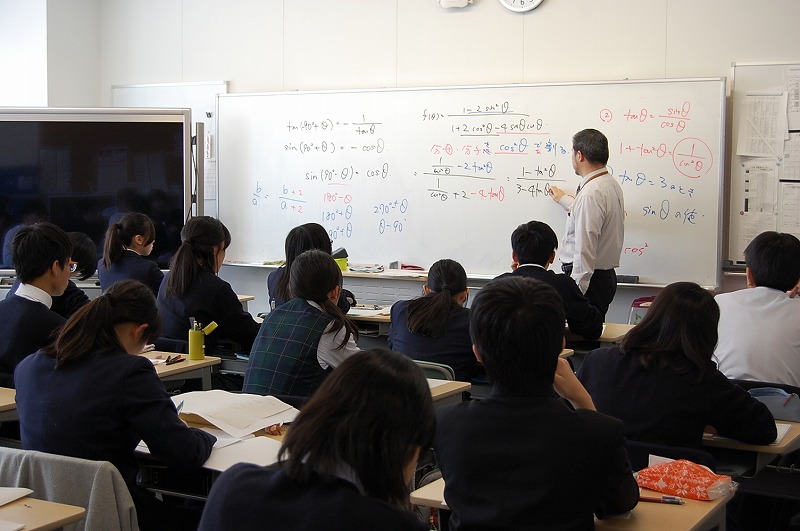 tan(90°+θ) = - 1/tanθ
sin(90°+θ) = - cosθ
sin(90°-θ) = cosθ
b/a = b×2/a×2
180°-θ
180°+θ
90°+θ
270°+θ
θ-90°
f(θ) = 1-2sin²θ / 1+2cos²θ-4sinθcosθ
分母・分子を cos²θ で割る
= 1/cos²θ - 2tan²θ / 1/cos²θ + 2 - 4tanθ
= 1-tan²θ / 3-4tanθ
② tanθ = sinθ/cosθ
1+tan²θ = 1/cos²θ
tanθ = 3のとき
sinθの値
cos²